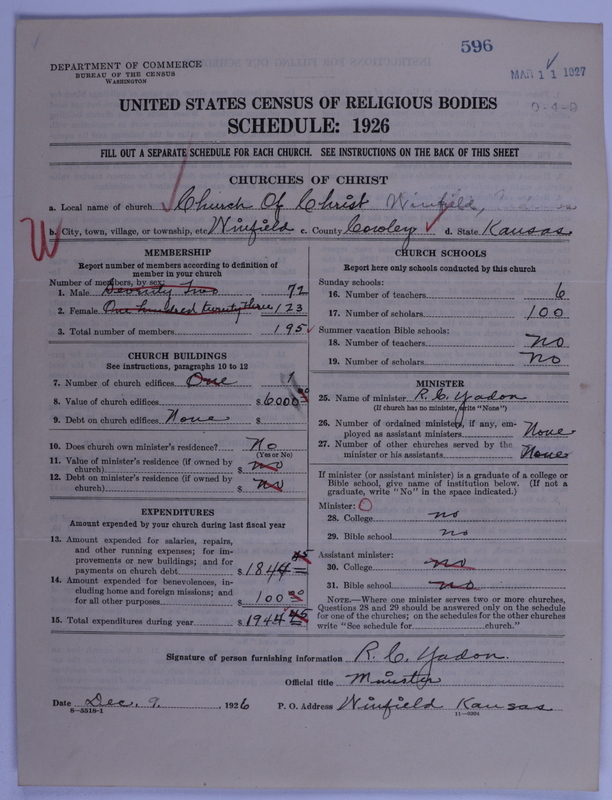 596
MAR 11 1927
0-4-9
DEPARTMENT OF COMMERCE
BUREAU OF THE CENSUS
WASHINGTON
UNITED STATES CENSUS OF RELIGIOUS BODIES
SCHEDULE: 1926
FILL OUT A SEPARATE SCHEDULE FOR EACH CHURCH. SEE INSTRUCTIONS ON THE BACK OF THIS SHEET
CHURCHES OF CHRIST
a. Local name of church Church Of Christ Winfield,
W
b. City, town, village, or township, etc Winfield c. County Cowley d. State Kansas
MEMBERSHIP
Report number of members according to definition of
member in your church
Number of members, by sex:
1. Male Seventy Two 72
2. Female One hundred twenty three 123
3. Total number of members 195
CHURCH BUILDINGS
See instructions, paragraphs 10 to 12
7. Number of church edifices One 1
8. Value of church edifices $ 6000 00
9. Debt on church edifices None $
10. Does church own minister's residence? No
(Yes or No)
11. Value of minister's residence (if owned by
church) $ no
12. Debt on minister's residence (if owned by
church) $ no
EXPENDITURES
Amount expended by your church during last fiscal year
13. Amount expended for salaries, repairs,
and other running expenses; for im-
provements or new buildings; and for
payments on church debt $ 1844 45
14. Amount expended for benevolences, in-
cluding home and foreign missions; and
for all other purposes $ 100 00
15. Total expenditures during year $ 1944 45
CHURCH SCHOOLS
Report here only schools conducted by this church
Sunday schools:
16. Number of teachers 6
17. Number of scholars 100
Summer vacation Bible schools:
18. Number of teachers no
19. Number of scholars no
MINISTER
25. Name of minister R. C. Yadon
(If church has no minister, write "None")
26. Number of ordained ministers, if any, em-
ployed as assistant ministers None
27. Number of other churches served by the
minister or his assistants None
If minister (or assistant minister) is a graduate of a college or
Bible school, give name of institution below. (If not a
graduate, write "No" in the space indicated.)
Minister: O
28. College no
29. Bible school no
Assistant minister:
30. College no
31. Bible school no
NOTE.—Where one minister serves two or more churches,
Questions 28 and 29 should be answered only on the schedule
for one of the churches; on the schedules for the other churches
write "See schedule for church."
Signature of person furnishing information R. C. Yadon.
Official title Minister
Date Dec. 9. 1926 P. O. Address Winfield Kansas
8—5518-1